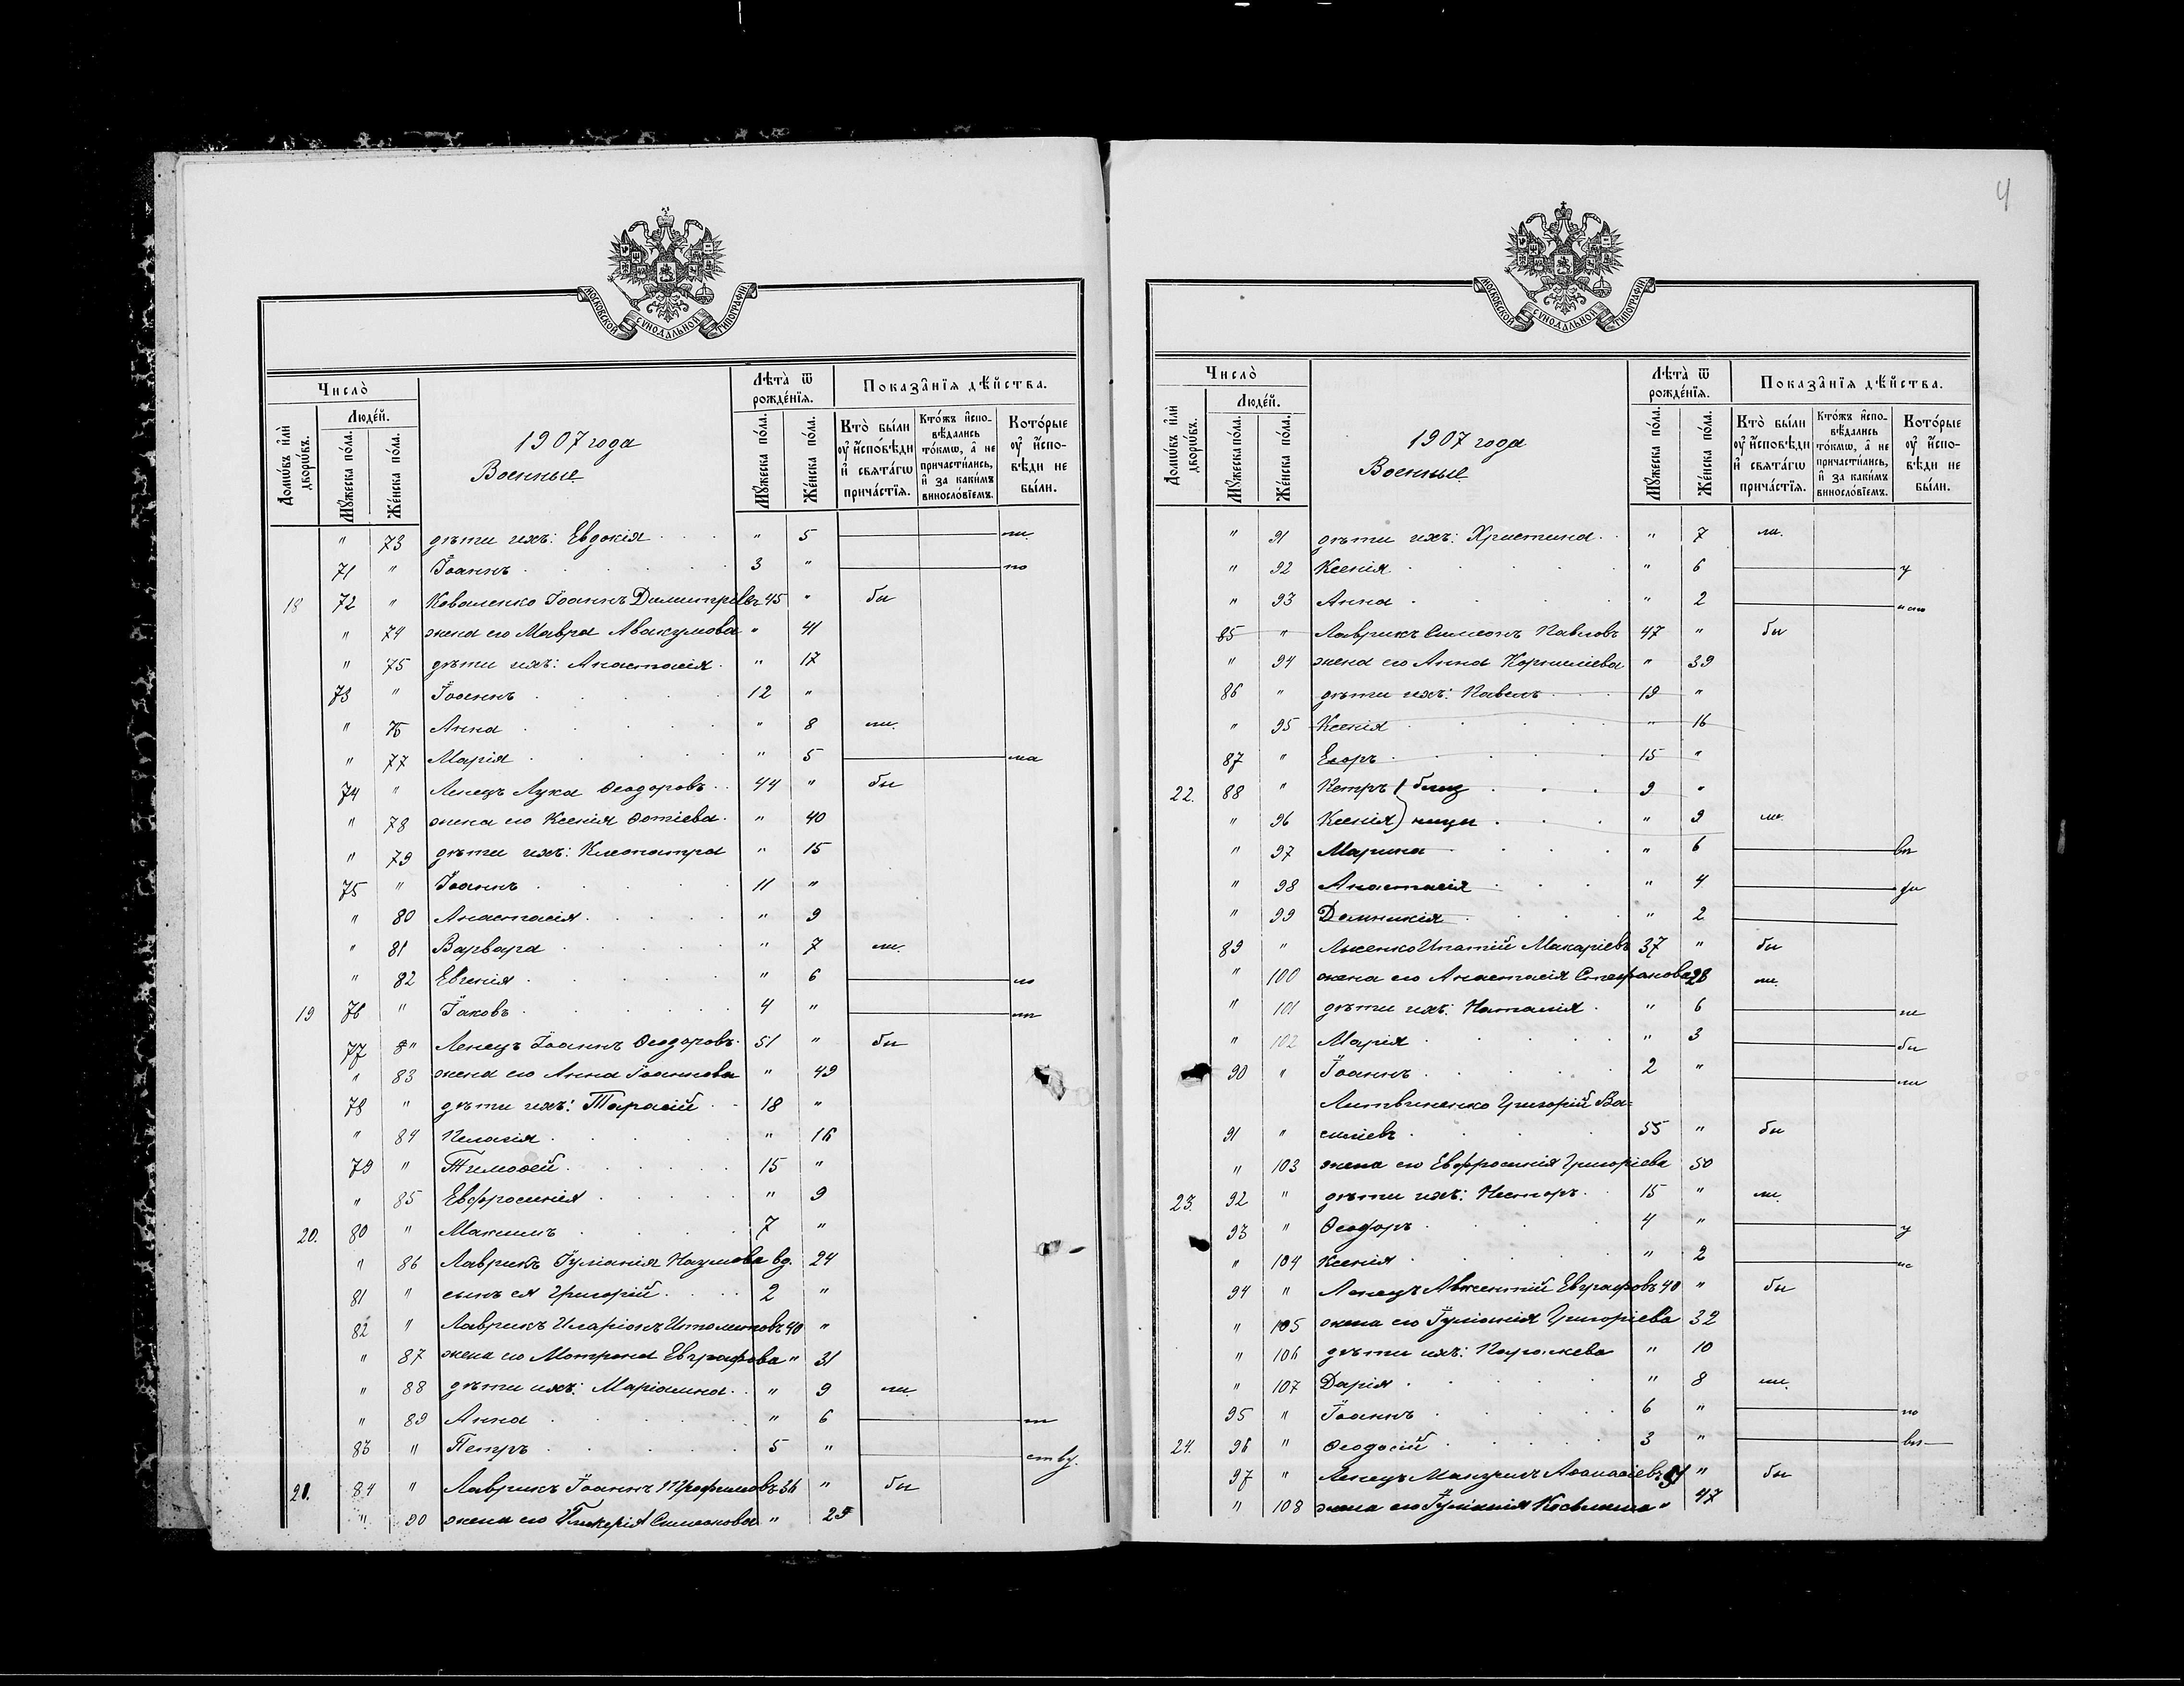 4
МОСКОВСКОЙ СѴНОДАЛЬНОЙ ТИПОГРАФІИ
Число̀
Домѡ́въ и҆лѝ дворѡ́въ.
Люде́й.
Мꙋ́жеска по́ла.
Же́нска по́ла.
1907 года
Военные
Лѣта̀ ѿ рожде́нїѧ.
Мꙋ́жеска по́ла.
Же́нска по́ла.
Показа̑нїѧ дѣ́йства.
Кто̀ бы́ли оу҆ и҆́сповѣди и҆ свѧта́гѡ прича́стїѧ.
Кто́жъ и҆спо-вѣ́дались то́кмѡ, а҆ не причасти́лись, и҆ за каки́мъ винословїемъ.
Кото́рые оу҆ и҆́спо-вѣди не бы́ли.
" 73 дѣти ихъ: Евдокія " 5 ли.
71 " Іоаннъ 3 " по
18 72 " Коваленко Іоаннъ Димитріевъ 45 " бы
" 74 жена его Мавра Авакумова " 41
" 75 дѣти ихъ: Анастасія " 17
73 " Іоаннъ 12 "
" 76 Анна " 8 ли.
" 77 Марія " 5 ма
74 " Ленецъ Лука Ѳеодоровъ 44 " бы
" 78 жена его Ксенія Фотіева " 40
" 79 дѣти ихъ: Клеопатра " 15
75 " Іоаннъ 11 "
" 80 Анастасія " 9
" 81 Варвара " 7 ли.
" 82 Евгенія " 6 ло
19 76 " Іаковъ 4 "
77 " Ленецъ Іоаннъ Ѳеодоровъ 51 " бы
" 83 жена его Анна Іоаннова " 49
78 " дѣти ихъ: Тарасій 18 "
" 84 Пелагія " 16
79 " Тимоѳей 15 "
" 85 Евфросинія " 9
20. 80 " Максимъ 7 "
" 86 Лаврикъ Іуліанія Наумова вд. 24
81 " сынъ ея Григорій 2 "
82 " Лаврикъ Иларіонъ Иполитовъ 40 "
" 87 жена его Матрона Евграфова " 31
" 88 дѣти ихъ: Маріамна " 9 ли.
" 89 Анна " 6 т
83 " Петръ 5 " ству.
21. 84 " Лаврикъ Іоаннъ Трофимовъ 36 " бы
" 90 жена его Гликерія Симеонова " 25
МОСКОВСКОЙ СѴНОДАЛЬНОЙ ТИПОГРАФІИ
Число̀
Домѡ́въ и҆лѝ дворѡ́въ.
Люде́й.
Мꙋ́жеска по́ла.
Же́нска по́ла.
1907 года
Военные
Лѣта̀ ѿ рожде́нїѧ.
Мꙋ́жеска по́ла.
Же́нска по́ла.
Показа̑нїѧ дѣ́йства.
Кто̀ бы́ли оу҆ и҆́сповѣди и҆ свѧта́гѡ прича́стїѧ.
Кто́жъ и҆спо-вѣ́дались то́кмѡ, а҆ не причасти́лись, и҆ за каки́мъ винословїемъ.
Кото́рые оу҆ и҆́спо-вѣди не бы́ли.
" 91 дѣти ихъ: Христина " 7 ли.
" 92 Ксенія " 6 у
" 93 Анна " 2
85 " Лаврикъ Симеонъ Павловъ 47 " бы
" 94 жена его Анна Корниліева " 39
86 " дѣти ихъ: Павелъ 19 "
" 95 Ксенія " 16
87 " Егоръ 15 "
22. 88 " Петръ } близ 9 "
" 96 Ксенія } нецы " 9 ли.
" 97 Марина " 6 въ
" 98 Анастасія " 4
" 99 Домникія " 2
89 " Лысенко Ипатій Макаріевъ 37 " бы
" 100 жена его Анастасія Стефанова 28 ли.
" 101 дѣти ихъ: Наталія " 6
" 102 Марія " 3 бы
90 " Іоаннъ 2 " ли
Литвиненко Григорій Ва=
91 " силіевъ 55 " бы
" 103 жена его Евфросинія Григоріева 50
23. 92 " дѣти ихъ: Несторъ 15 " ли.
93 " Ѳеодоръ 4 " у
" 104 Ксенія " 2 ис
94 " Ленецъ Авксентій Евграфовъ 40 " бы
" 105 жена его Іуліанія Григоріева 32
" 106 дѣти ихъ: Параскева " 10
" 107 Дарія " 8 ли.
95 " Іоаннъ 6 " по
24. 96 " Ѳеодосій 3 " вѣ
97 " Ленецъ Мануилъ Аѳанасіевъ 51 " бы
" 108 жена его Іуліанія Косьмина " 47